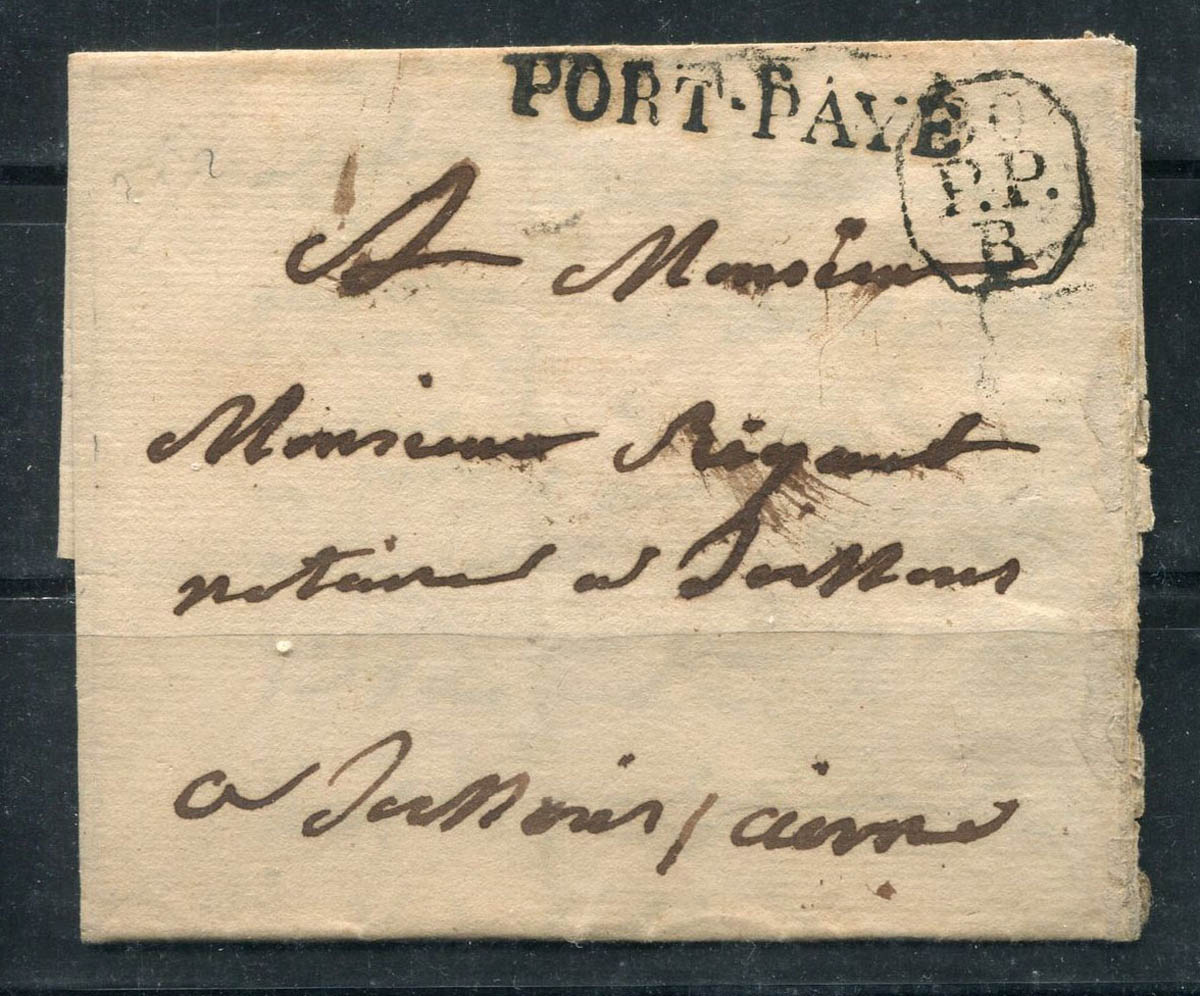 PORT-PAYÉ
P.P.
B
A Monsieur
Monsieur Rigaut
notaire a Soissons
a Soissons / aisne